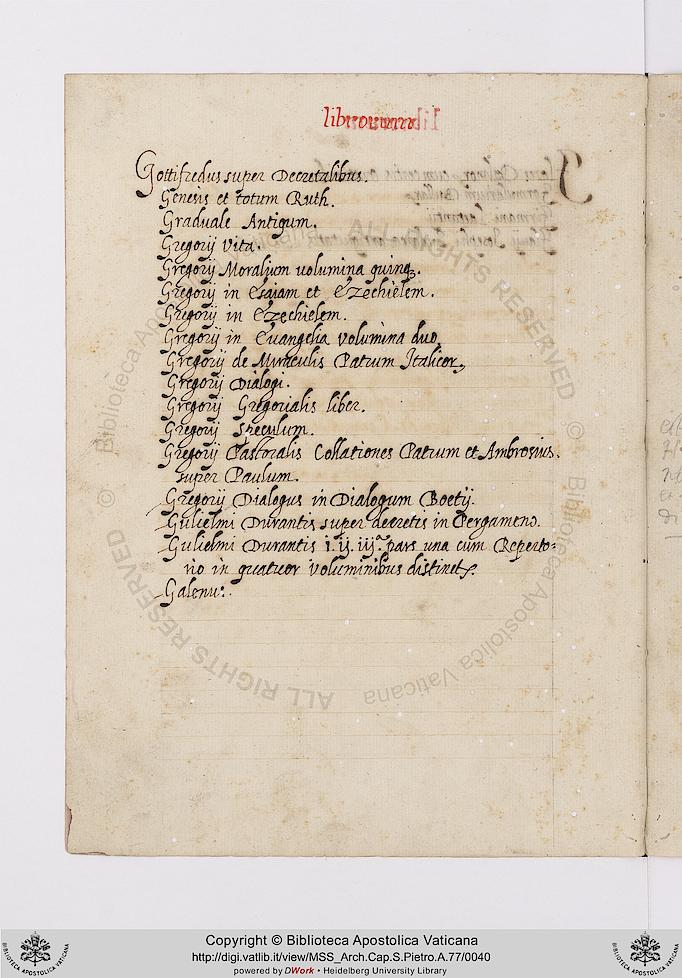 librorum
Gottifredus super Decretalibus.
Genesis et totum Ruth.
Graduale Antigum.
Gregorij Vita.
Gregorij Moralium volumina quinq3.
Gregorij in Esaiam et Ezechielem.
Gregorij in Ezechielem.
Gregorij in Euangelia volumina duo.
Gregorij de Miraculis Patrum Italicor,
Gregorij Dialogi.
Gregorij Gregorialis liber.
Gregorij Speculum.
Gregorij Pastoralis Collationes Patrum et Ambrosius.
super Paulum.
Gregorij Dialogus in Dialogum Boetij.
Gulielmi Durantis super decretis in Pergameno.
Gulielmi Durantis i. ij. iij.ª pars una cum Reperto-
rio in quatuor voluminibus distinct.
Galenu:.
© Biblioteca Apostolica Vaticana ALL RIGHTS RESERVED
© Biblioteca Apostolica Vaticana ALL RIGHTS RESERVED
Copyright © Biblioteca Apostolica Vaticana
http://digi.vatlib.it/view/MSS_Arch.Cap.S.Pietro.A.77/0040
powered by DWork • Heidelberg University Library
BIBLIOTECA APOSTOLICA VATICANA
BIBLIOTECA APOSTOLICA VATICANA